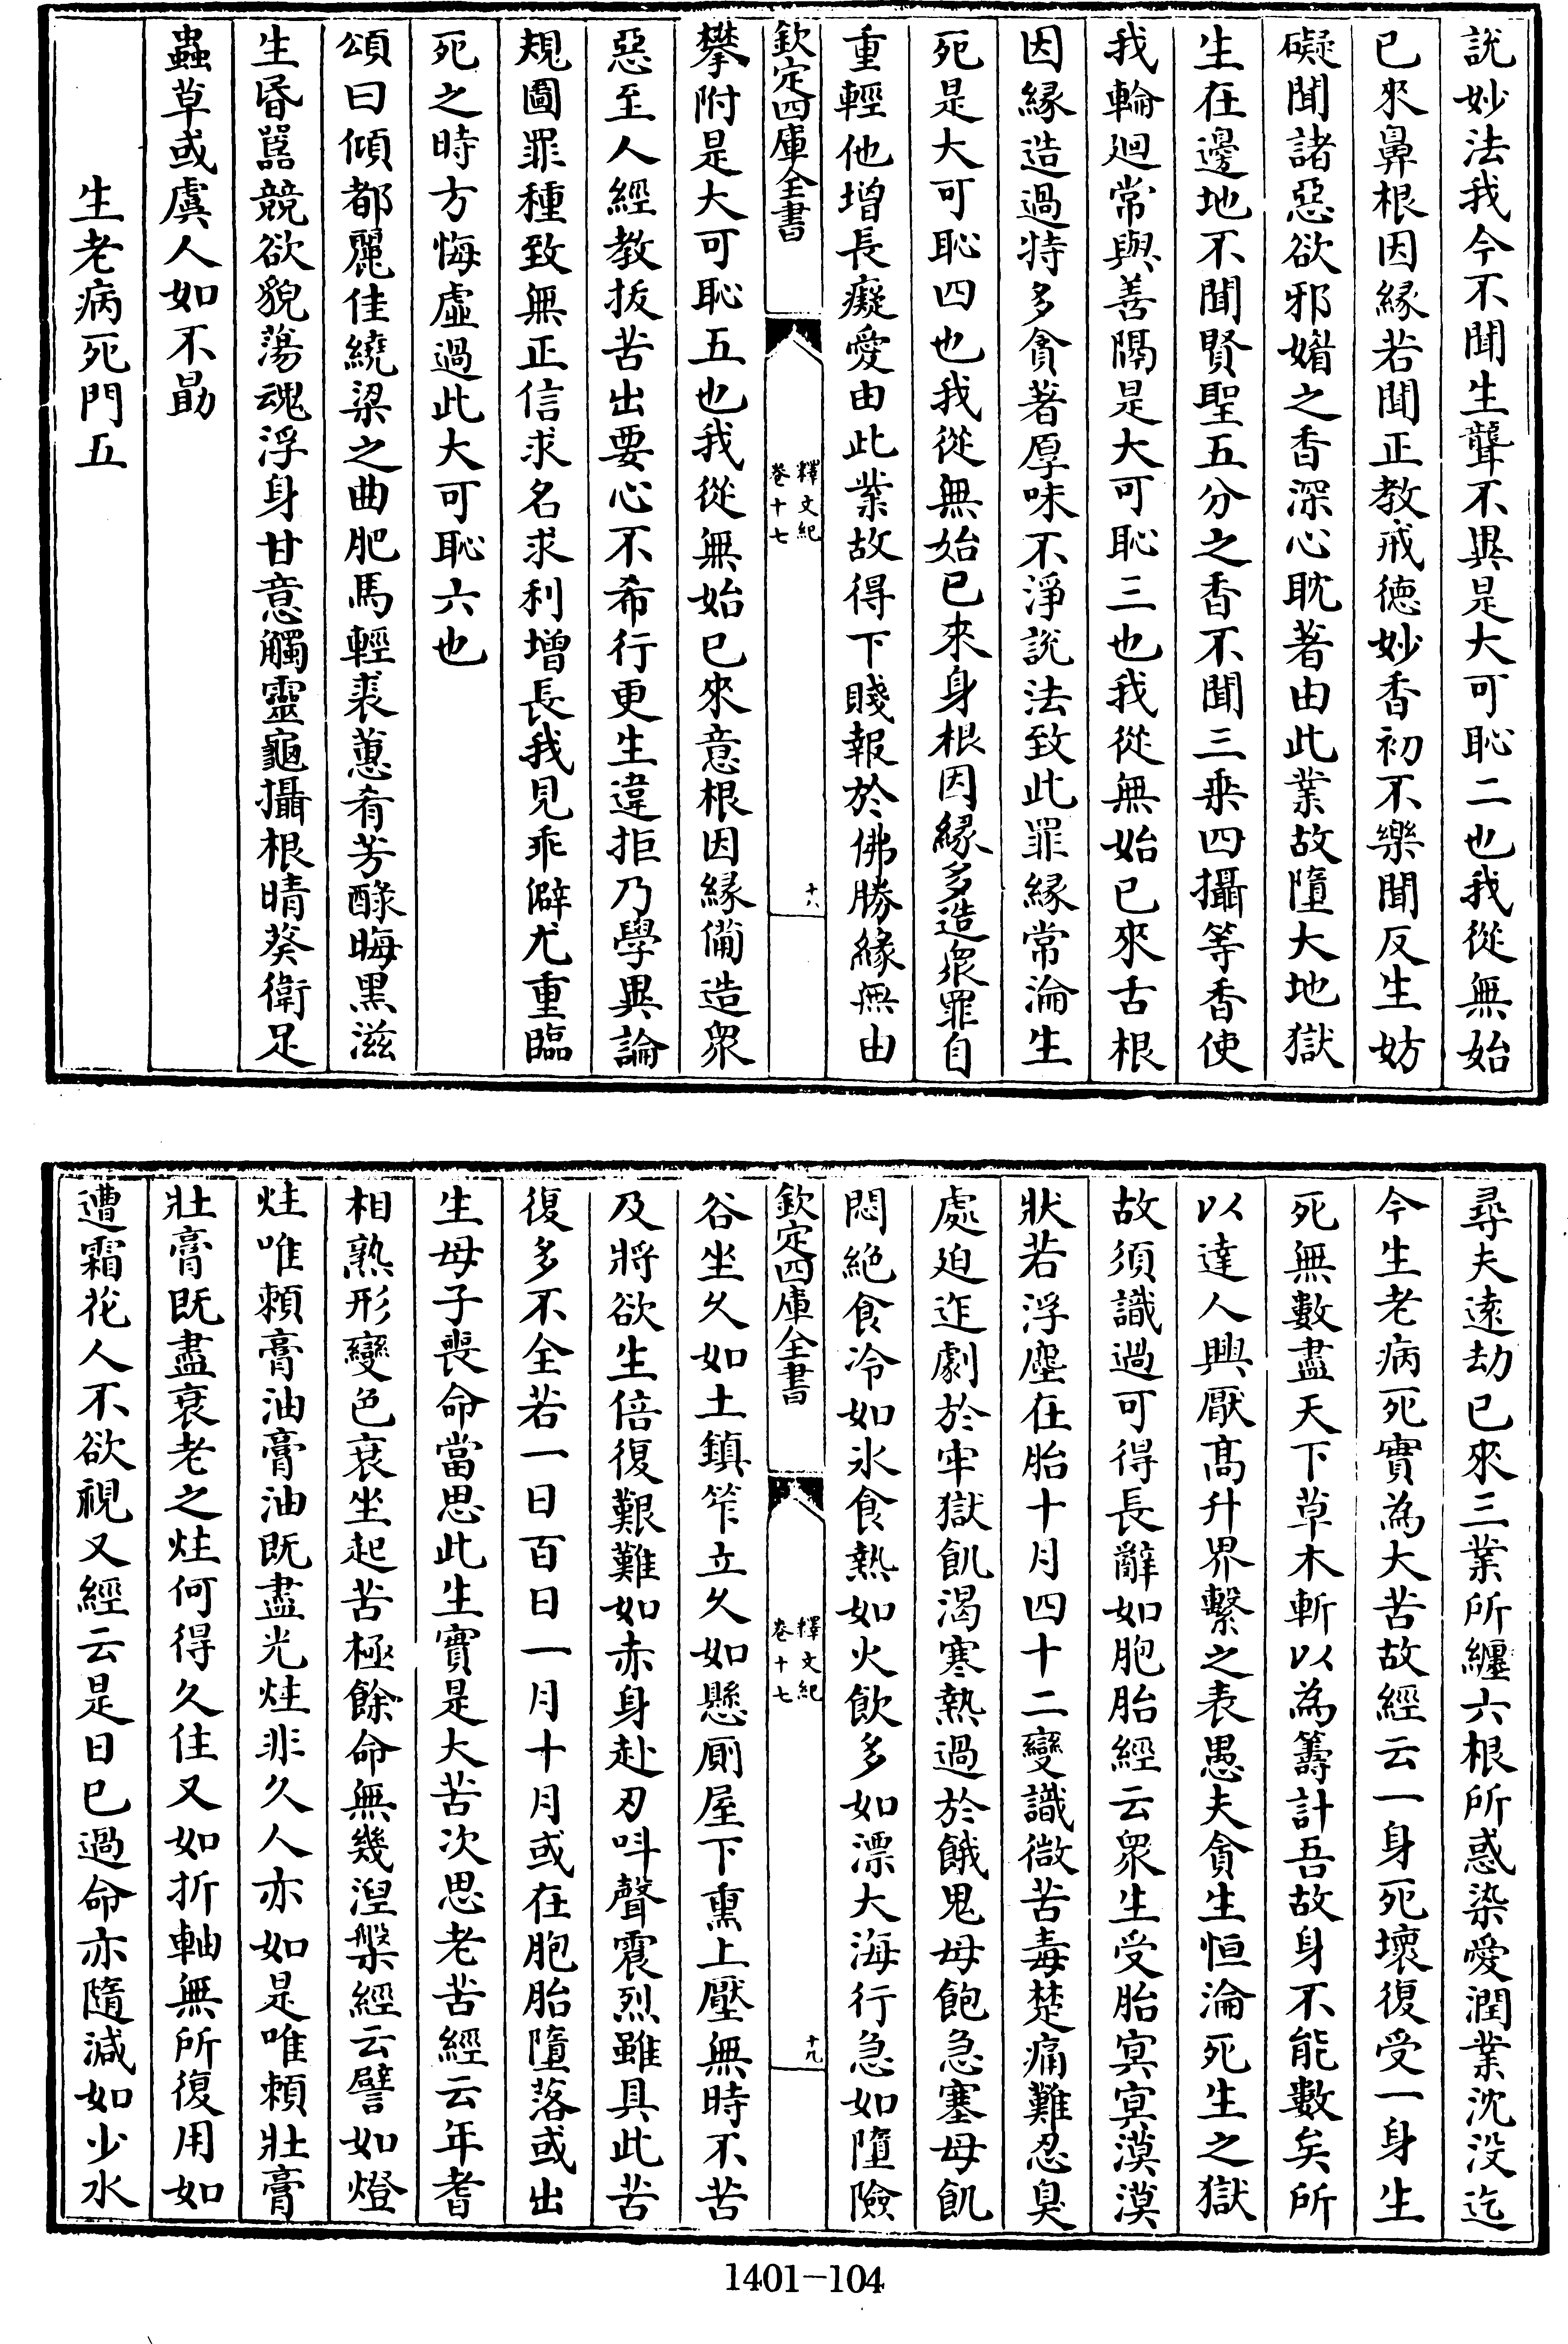 說妙法我今不聞生聾不異是大可恥二也我從無始
已來鼻根因緣若聞正教戒徳妙香初不樂聞反生妨
礙聞諸惡欲邪媚之香深心耽著由此業故墮大地獄
生在邊地不聞賢聖五分之香不聞三乗四攝等香使
我輪廻常與善隔是大可恥三也我從無始已來舌根
因縁造過特多貪著厚味不淨說法致此罪縁常淪生
死是大可恥四也我從無始已來身根因縁多造衆罪自
重輕他增長癡愛由此業故得下賤報於佛勝緣無由
欽定四庫全書
釋文紀
卷十七
十八
攀附是大可恥五也我從無始已來意根因緣備造衆
惡至人經教拔苦出要心不希行更生違拒乃學異論
規圖罪種致無正信求名求利增長我見乖僻尤重臨
死之時方悔虛過此大可恥六也
頌曰傾都麗佳繞梁之曲肥馬輕裘蕙肴芳醁晦黑滋
生昏嚚競欲貌蕩魂浮身甘意觸靈龜攝根晴葵衛足
蟲草或虞人如不勗
生老病死門五
尋夫遠劫已來三業所纏六根所惑染愛潤業沈没迄
今生老病死實為大苦故經云一身死壞復受一身生
死無數盡天下草木斬以為籌計吾故身不能數矣所
以達人興厭髙升界繫之表愚夫貪生恒淪死生之獄
故須識過可得長辭如胞胎經云衆生受胎冥冥漠漠
狀若浮塵在胎十月四十二變識微苦毒楚痛難忍臭
處迫迮劇於牢獄飢渴寒熱過於餓鬼母飽急塞母飢
悶絶食冷如氷食熱如火飲多如漂大海行急如墮險
欽定四庫全書
釋文紀
卷十七
十九
谷坐乆如土鎮笮立乆如懸厠屋下熏上壓無時不苦
及將欲生倍復艱難如赤身赴刃呌聲震烈雖具此苦
復多不全若一日百日一月十月或在胞胎墮落或出
生母子喪命當思此生實是大苦次思老苦經云年耆
相熟形變色衰坐起苦極餘命無幾湼槃經云譬如燈
炷唯頼膏油膏油既盡光炷非久人亦如是唯頼壯膏
壯膏既盡衰老之炷何得久住又如折軸無所復用如
遭霜花人不欲視又經云是日已過命亦隨減如少水
1401-104